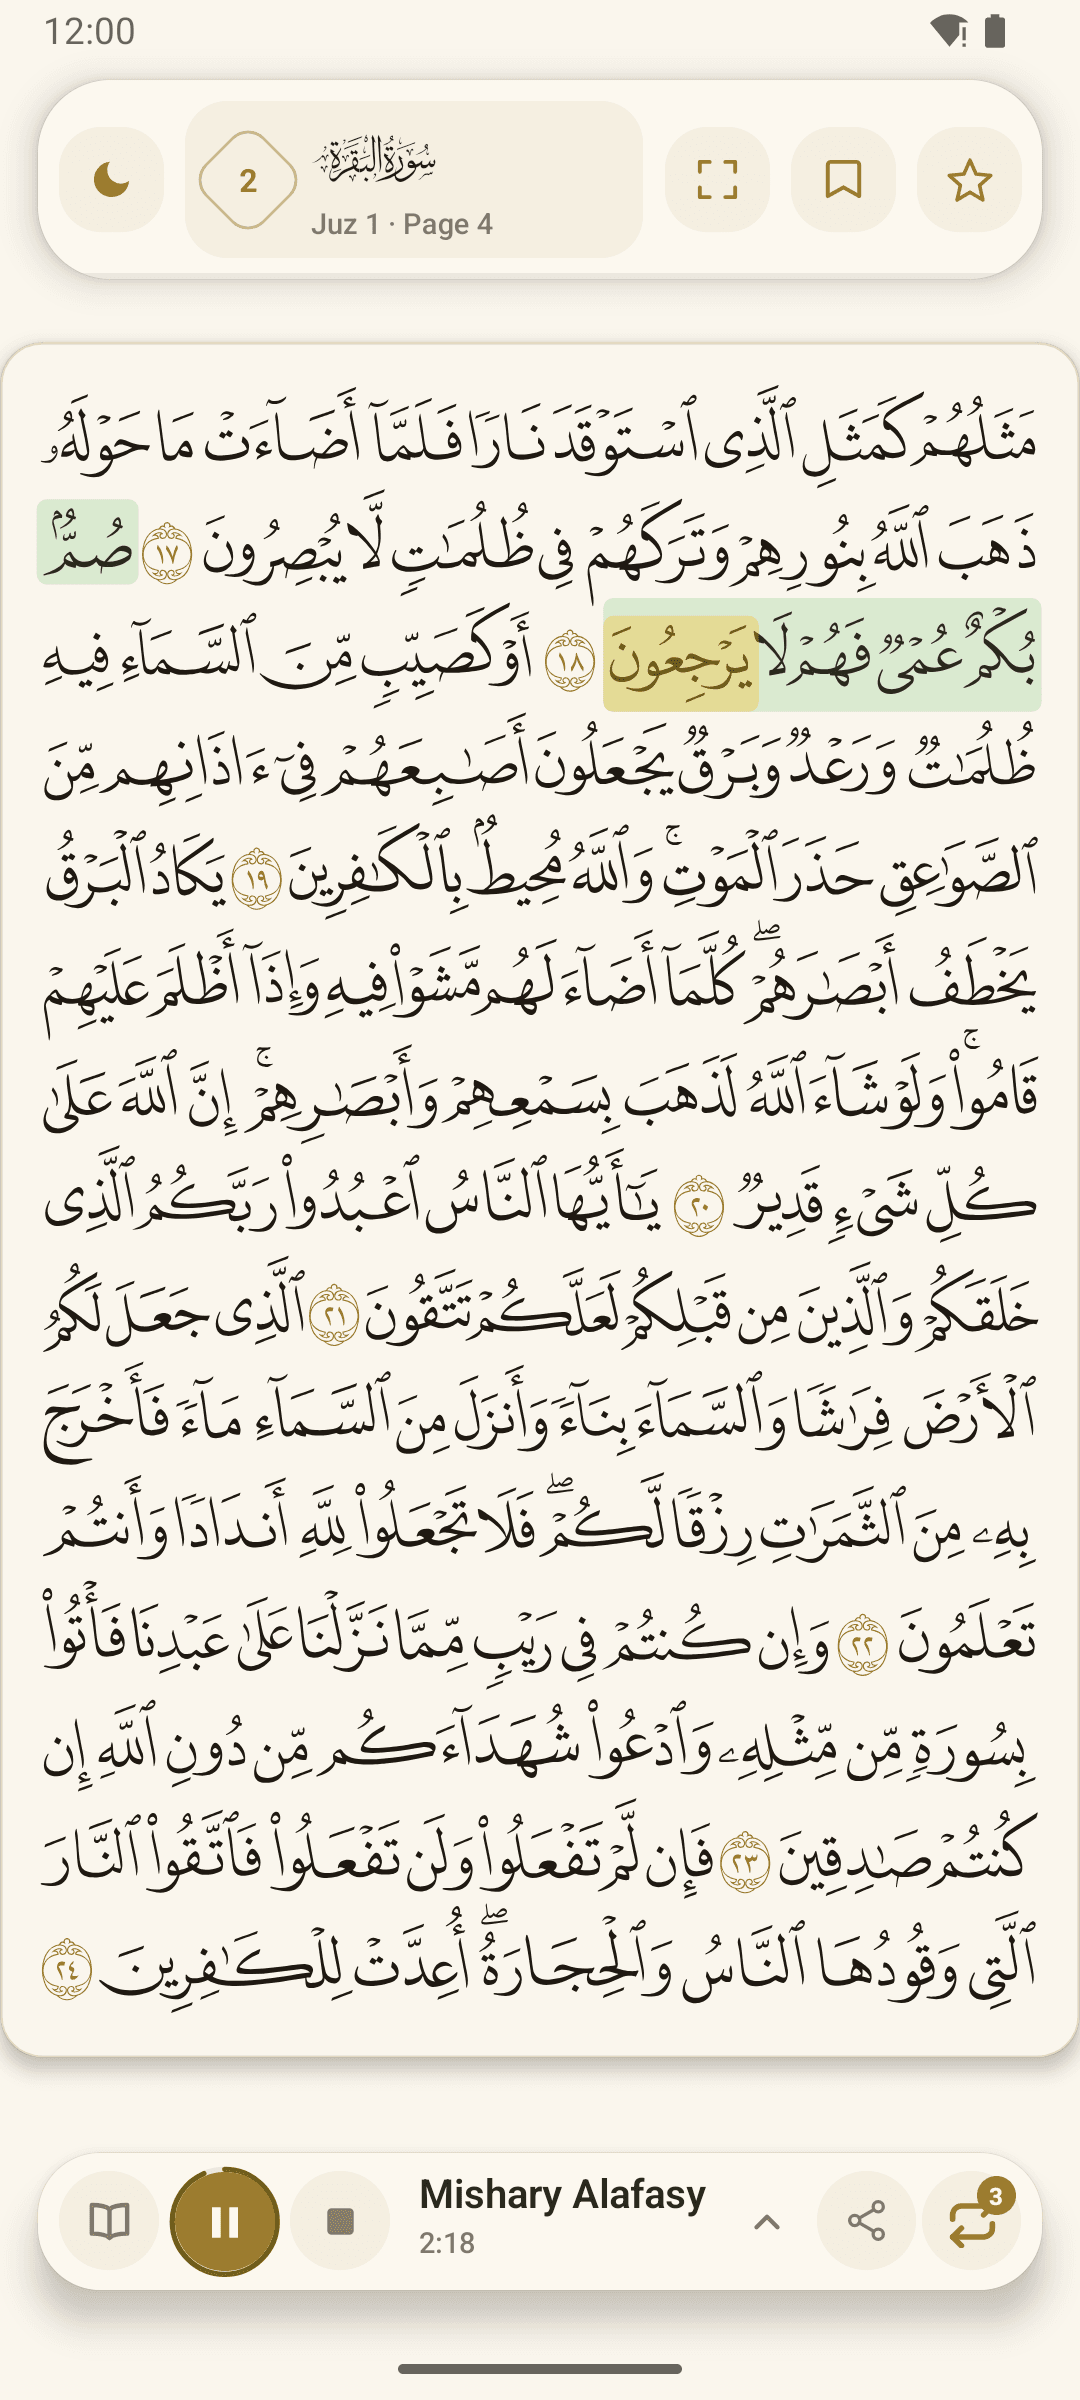 12:00
2
سُورَةُ البَقَرَةِ
Juz 1 · Page 4
مَثَلُهُمۡ كَمَثَلِ ٱلَّذِى ٱسۡتَوۡقَدَ نَارٗا فَلَمَّآ أَضَآءَتۡ مَا حَوۡلَهُۥ
ذَهَبَ ٱللَّهُ بِنُورِهِمۡ وَتَرَكَهُمۡ فِى ظُلُمَٰتٖ لَّا يُبۡصِرُونَ ١٧ صُمُّۢ
بُكۡمٌ عُمۡىٞ فَهُمۡ لَا يَرۡجِعُونَ ١٨ أَوۡ كَصَيِّبٖ مِّنَ ٱلسَّمَآءِ فِيهِ
ظُلُمَٰتٞ وَرَعۡدٞ وَبَرۡقٞ يَجۡعَلُونَ أَصَٰبِعَهُمۡ فِىٓ ءَاذَانِهِم مِّنَ
ٱلصَّوَٰعِقِ حَذَرَ ٱلۡمَوۡتِۚ وَٱللَّهُ مُحِيطُۢ بِٱلۡكَٰفِرِينَ ١٩ يَكَادُ ٱلۡبَرۡقُ
يَخۡطَفُ أَبۡصَٰرَهُمۡۖ كُلَّمَآ أَضَآءَ لَهُم مَّشَوۡاْ فِيهِ وَإِذَآ أَظۡلَمَ عَلَيۡهِمۡ
قَامُواْۚ وَلَوۡ شَآءَ ٱللَّهُ لَذَهَبَ بِسَمۡعِهِمۡ وَأَبۡصَٰرِهِمۡۚ إِنَّ ٱللَّهَ عَلَىٰ
كُلِّ شَىۡءٖ قَدِيرٞ ٢٠ يَٰٓأَيُّهَا ٱلنَّاسُ ٱعۡبُدُواْ رَبَّكُمُ ٱلَّذِى
خَلَقَكُمۡ وَٱلَّذِينَ مِن قَبۡلِكُمۡ لَعَلَّكُمۡ تَتَّقُونَ ٢١ ٱلَّذِى جَعَلَ لَكُمُ
ٱلۡأَرۡضَ فِرَٰشٗا وَٱلسَّمَآءَ بِنَآءٗ وَأَنزَلَ مِنَ ٱلسَّمَآءِ مَآءٗ فَأَخۡرَجَ
بِهِۦ مِنَ ٱلثَّمَرَٰتِ رِزۡقٗا لَّكُمۡۖ فَلَا تَجۡعَلُواْ لِلَّهِ أَندَادٗا وَأَنتُمۡ
تَعۡلَمُونَ ٢٢ وَإِن كُنتُمۡ فِى رَيۡبٖ مِّمَّا نَزَّلۡنَا عَلَىٰ عَبۡدِنَا فَأۡتُواْ
بِسُورَةٖ مِّن مِّثۡلِهِۦ وَٱدۡعُواْ شُهَدَآءَكُم مِّن دُونِ ٱللَّهِ إِن
كُنتُمۡ صَٰدِقِينَ ٢٣ فَإِن لَّمۡ تَفۡعَلُواْ وَلَن تَفۡعَلُواْ فَٱتَّقُواْ ٱلنَّارَ
ٱلَّتِى وَقُودُهَا ٱلنَّاسُ وَٱلۡحِجَارَةُۖ أُعِدَّتۡ لِلۡكَٰفِرِينَ ٢٤
Mishary Alafasy
2:18
3